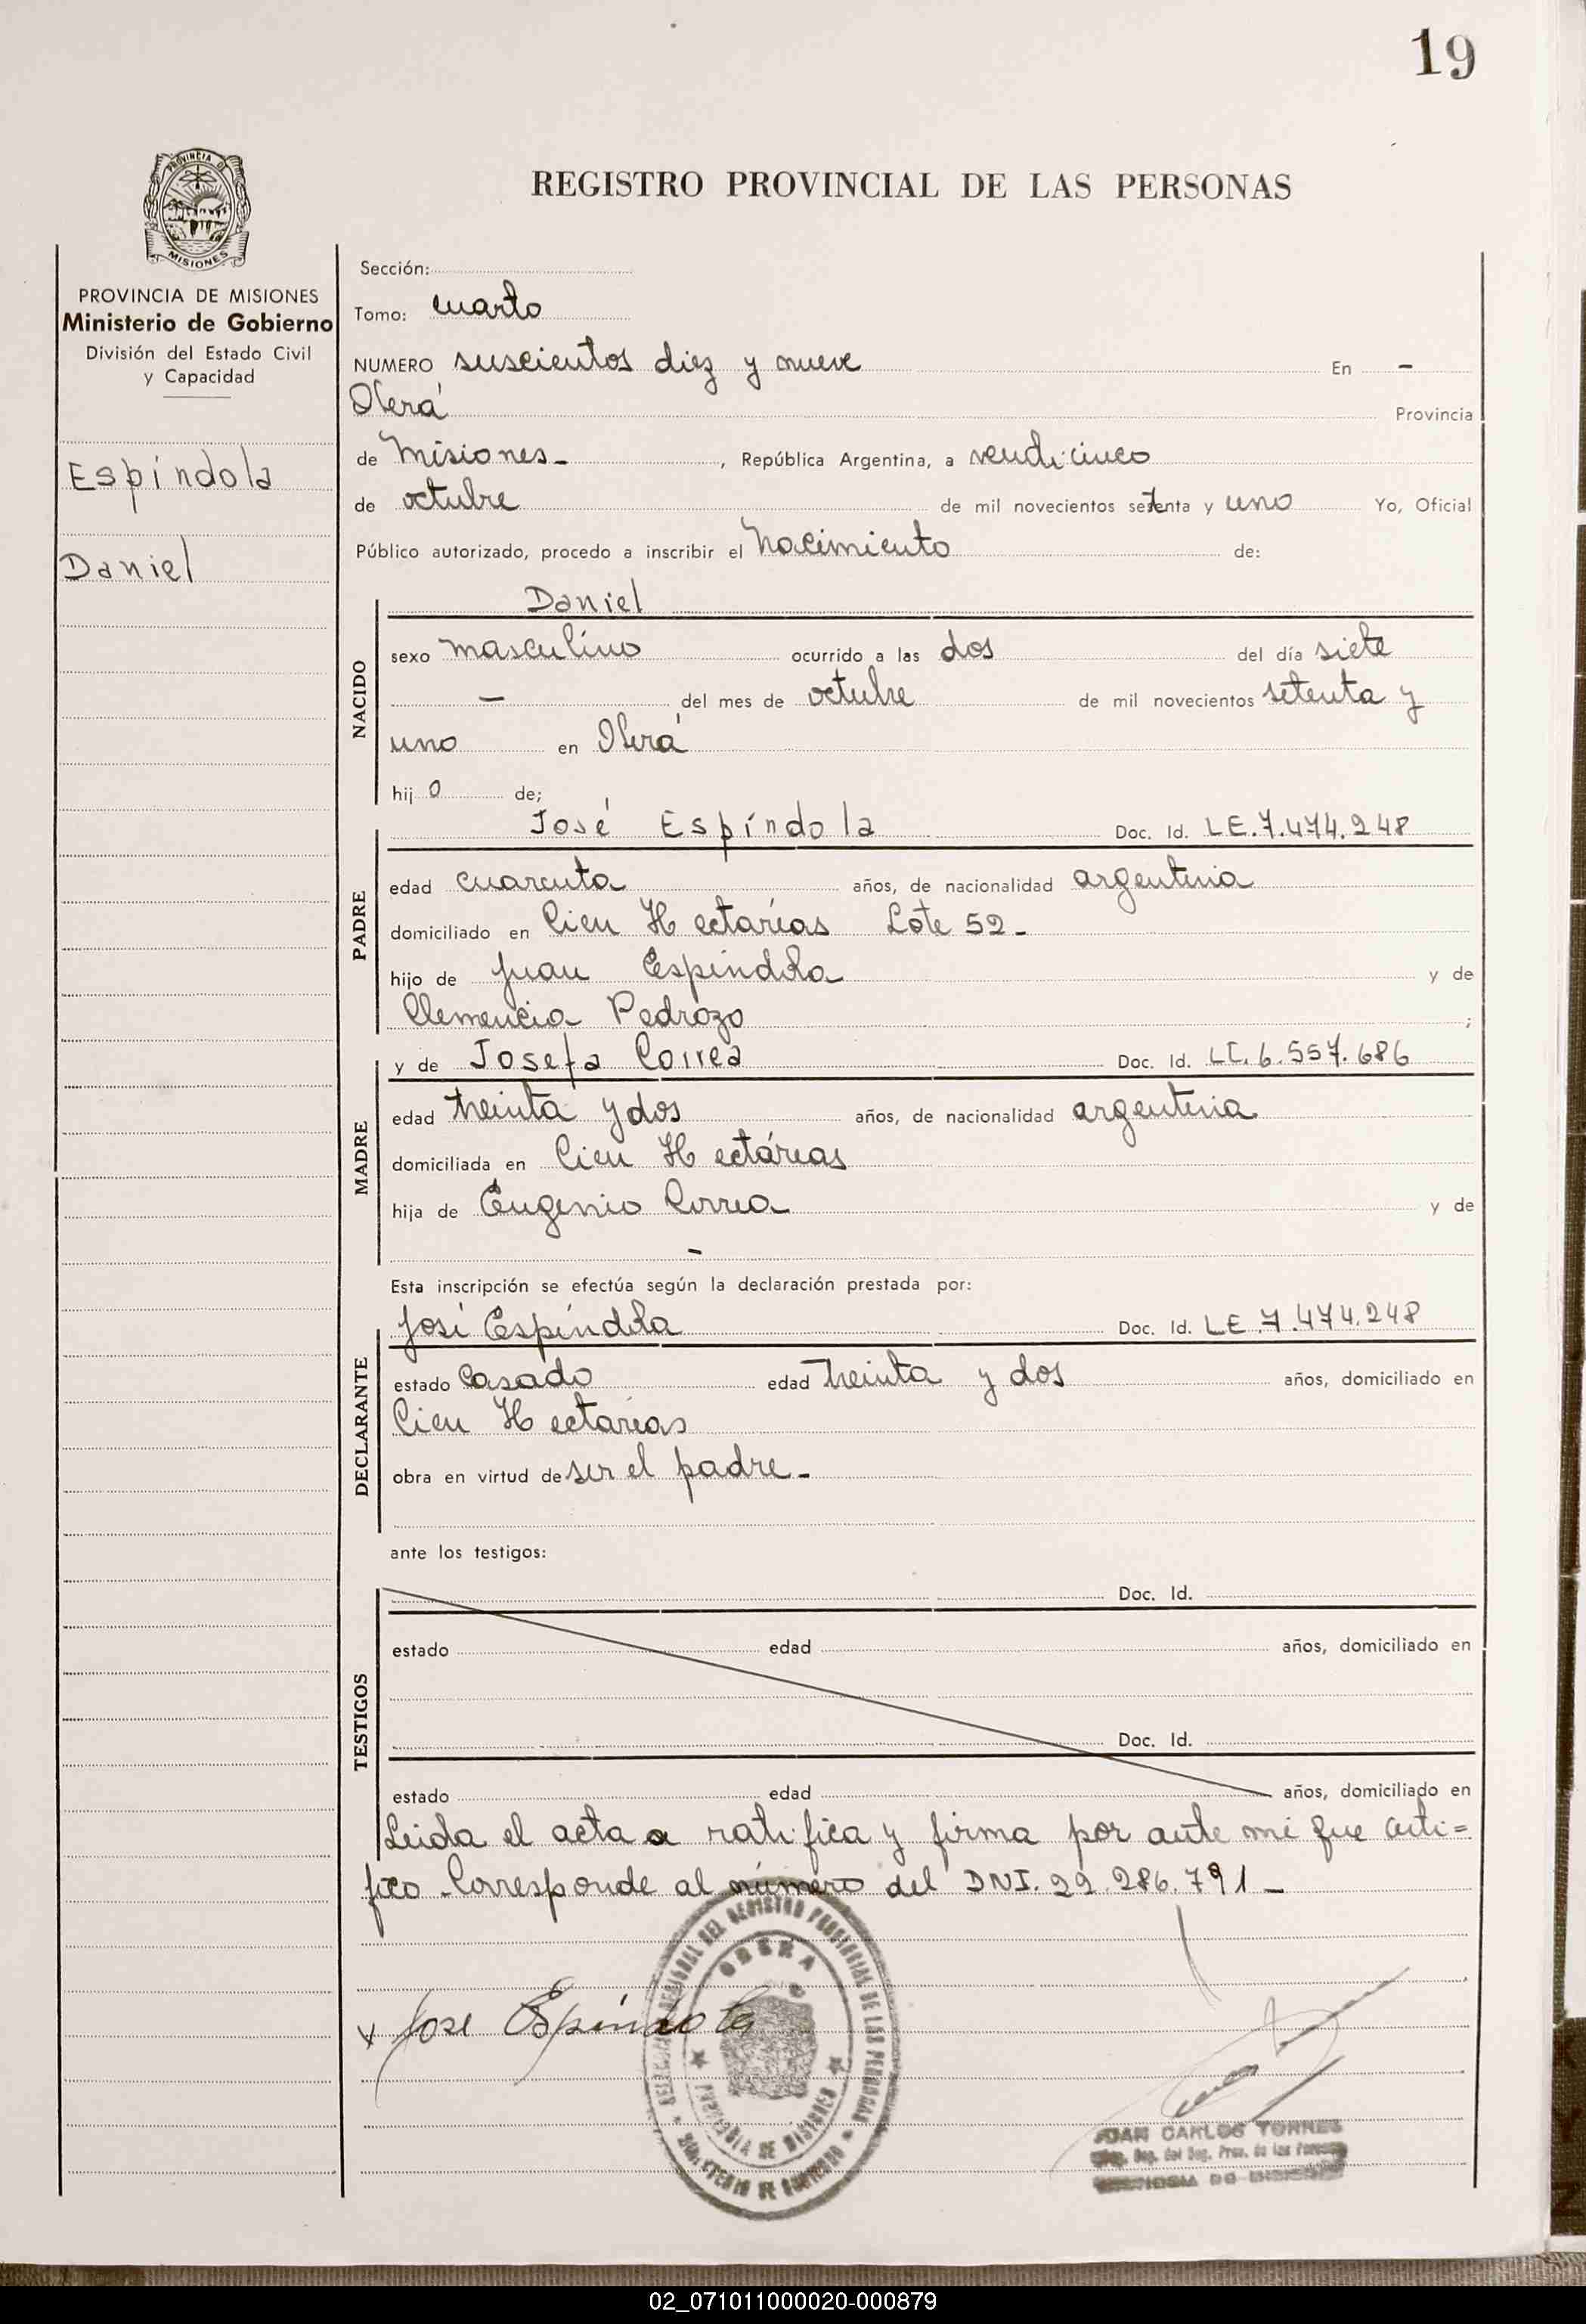 19
PROVINCIA DE
MISIONES
REGISTRO PROVINCIAL DE LAS PERSONAS
PROVINCIA DE MISIONES
Ministerio de Gobierno
División del Estado Civil
y Capacidad
Espíndola
Daniel
Sección:
Tomo: cuarto
NUMERO suscientos diez y nueve En -
Oberá Provincia
de Misiones- , República Argentina, a veudicinco
de octubre de mil novecientos setenta y uno Yo, Oficial
Público autorizado, procedo a inscribir el nacimiento de:
NACIDO
Daniel
sexo masculino ocurrido a las dos del día siete
- del mes de octubre de mil novecientos setenta y
uno en Oberá
hijo de;
PADRE
José Espíndola Doc. Id. LE.7.474.248
edad cuarenta años, de nacionalidad argentina
domiciliado en Cien Hectáreas Lote 52-
hijo de Juan Espíndola y de
Clemencia Pedrozo ;
MADRE
y de Josefa Correa Doc. Id. LC.6.557.686
edad treinta y dos años, de nacionalidad argentina
domiciliada en Cien Hectáreas
hija de Eugenio Correa y de
-
Esta inscripción se efectúa según la declaración prestada por:
DECLARANTE
José Espíndola Doc. Id. LE.7.474.248
estado Casado edad treinta y dos años, domiciliado en
Cien Hectáreas
obra en virtud de ser el padre-
ante los testigos:
TESTIGOS
Doc. Id.
estado edad años, domiciliado en
Doc. Id.
estado edad años, domiciliado en
Leida el acta a ratifica y firma por ante mi que certi=
fico - Corresponde al número del DNI. 22.286.791-
x Jose Espíndola
DELEGACION REGIONAL DEL REGISTRO PROVINCIAL DE LAS PERSONAS
OBERA
PROVINCIA DE MISIONES
MINISTERIO DE GOBIERNO
JUAN CARLOS TORRES
Reg. del Reg. Prov. de las Personas
PROVINCIA DE MISIONES
02_071011000020-000879